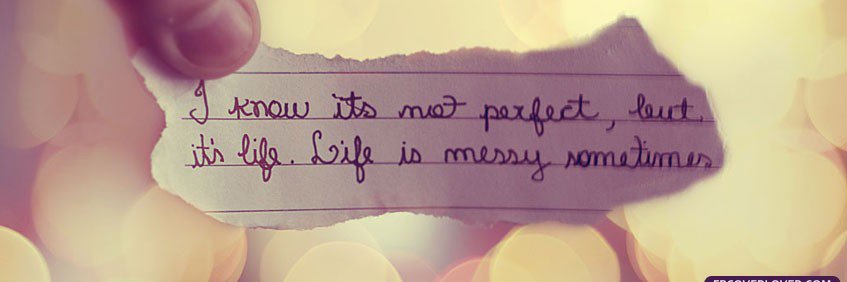 I know its not perfect, but
it's life. Life is messy sometimes
FBCOVERLOVER.COM